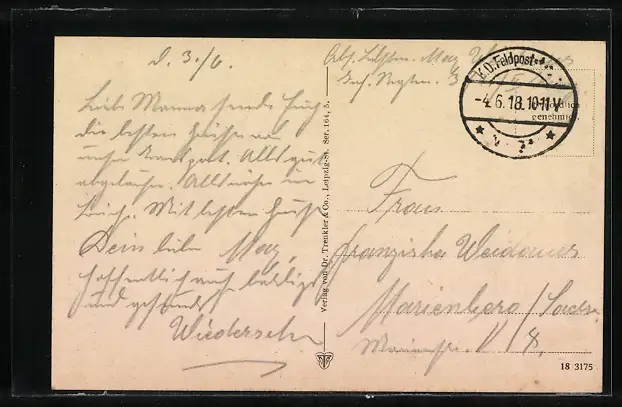 d. 3./6.
Liebe Mamma sende Euch
die besten Grüße von
unser Transport. Alles gut
abgelaufen. Alles nähere im
Brief. Mit besten Gruß
Dein lieber Max,
hoffentlich auf baldiges
und gesundes
Wiedersehn
Verlag von Dr. Trenkler & Co., Leipzig-St. Ser. 164, 5.
Abs. Max
K.D. Feldpost
-4.6.18.10-11V
genehmigt
Frau
Franziska Weidauer
Marienberg / Sachse.
18 3175